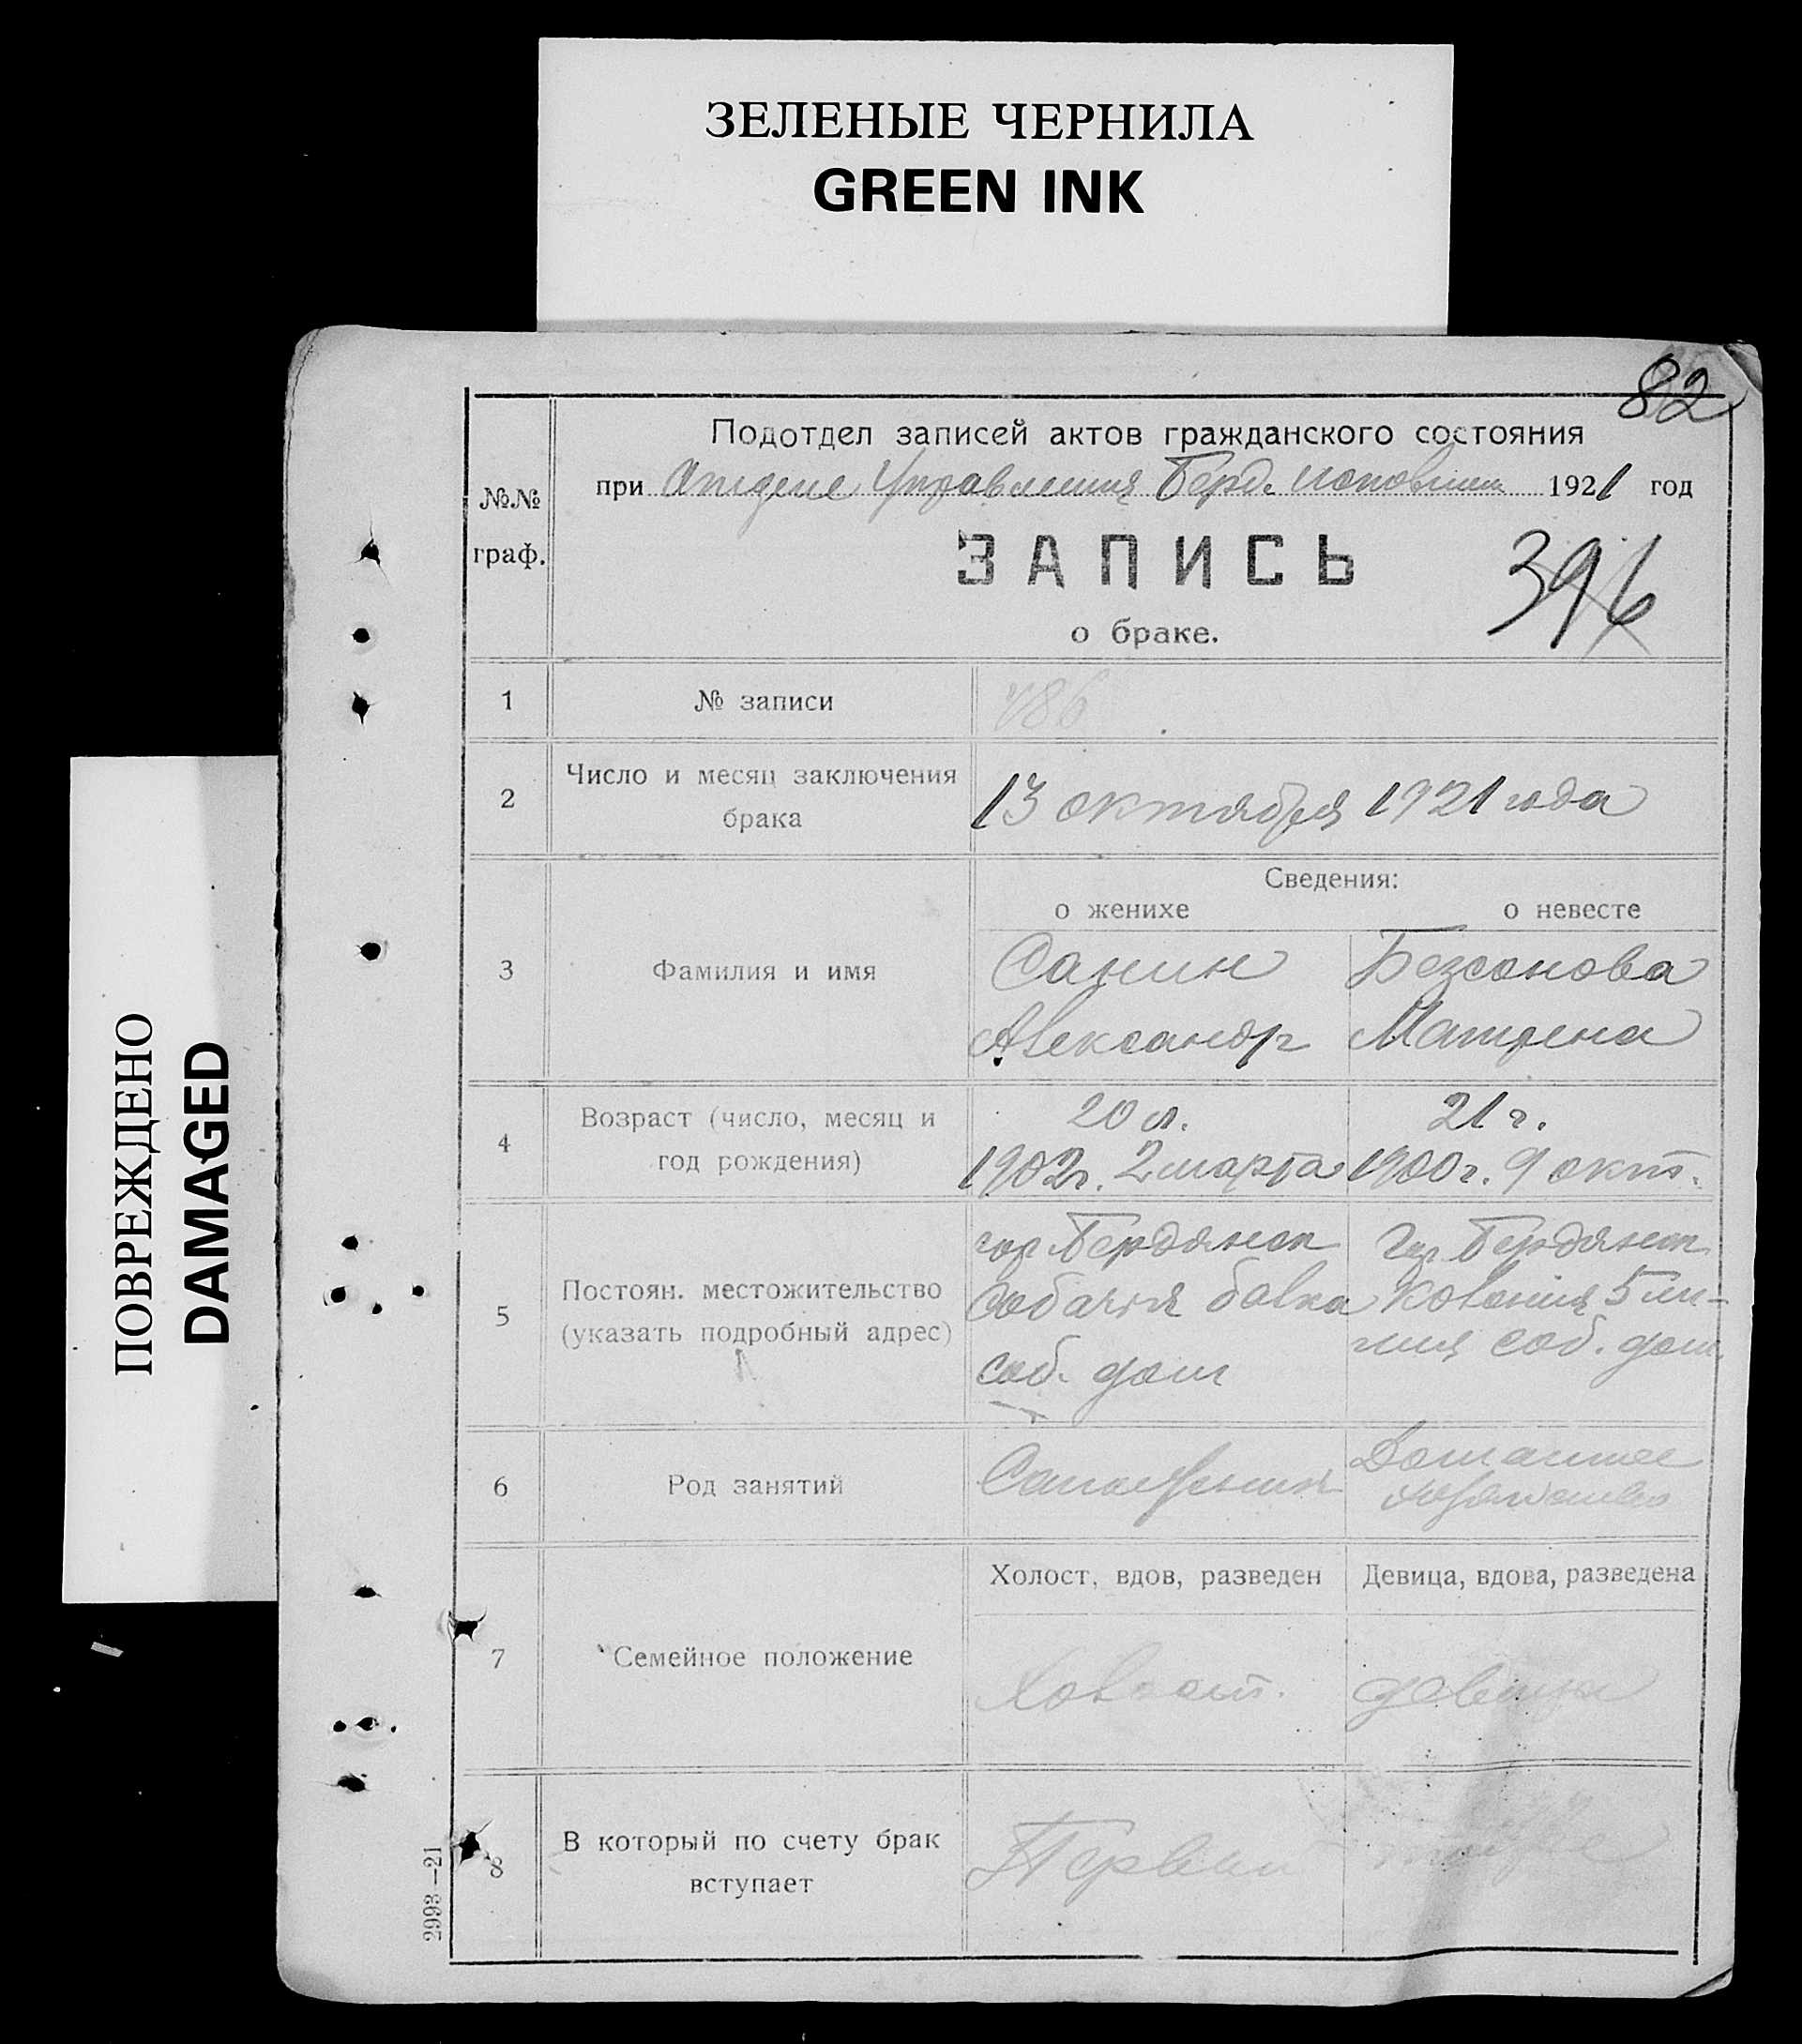 ЗЕЛЕНЫЕ ЧЕРНИЛА
GREEN INK
ПОВРЕЖДЕНО
DAMAGED
82
№№ граф.
Подотдел записей актов гражданского состояния
при Отделе Управления Берд. 1921 год
ЗАПИСЬ
396
о браке.
1 № записи 486
2 Число и месяц заключения брака 13 октября 1921 года
Сведения:
о женихе о невесте
3 Фамилия и имя
Санин Безсонова
Александр Матрена
4 Возраст (число, месяц и год рождения)
20 л. 21 г.
1902 г. 2 марта 1900 г. 9 окт.
5 Постоян. местожительство (указать подробный адрес)
гор. Бердянск Гор. Бердянск
Собачья балка Колония 5 ли-
соб. дом ния соб. дом
6 Род занятий
Сапожник Домашнее
хозяйство
Холост, вдов, разведен Девица, вдова, разведена
7 Семейное положение
Холост. девица
8 В который по счету брак вступает
Первый
2993—21